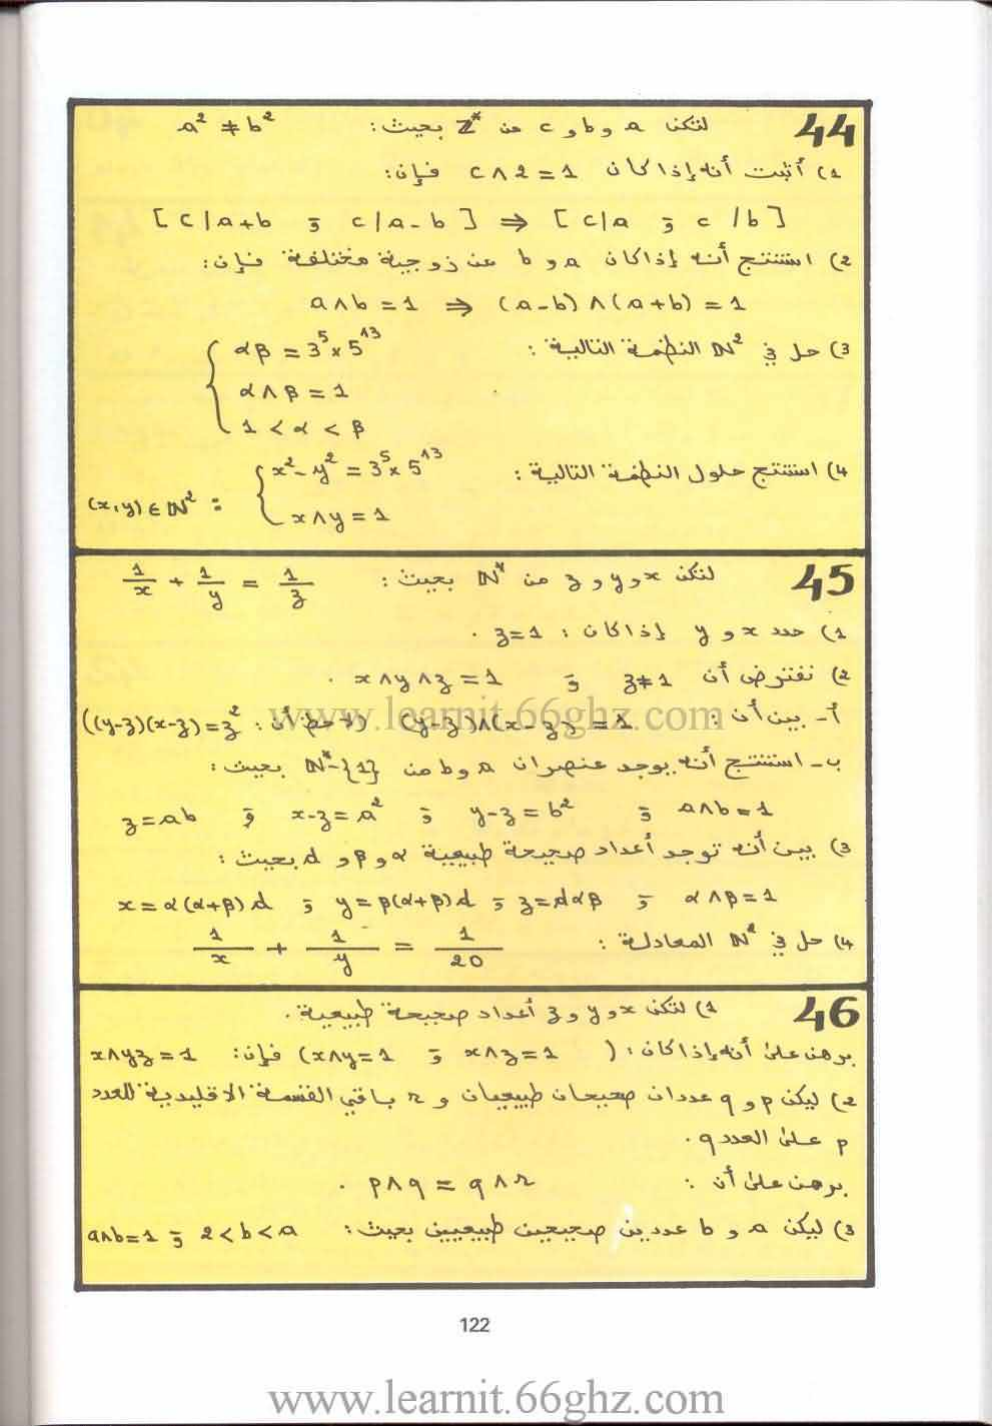 44 لتكن a و b و c من ℤ* بحيث: a² ≠ b²
1) أثبت أنه إذا كان c∧2 = 1 فإن:
[c|a+b و c|a-b] ⇒ [c|a و c/b]
2) استنتج أنه إذا كان a و b من زوجية مختلفة فإن:
a∧b = 1 ⇒ (a-b)∧(a+b) = 1
3) حل في ℕ² النظمة التالية: { αβ = 3⁵×5¹³
α∧β = 1
1 < α < β
4) استنتج حلول النظمة التالية: { x²-y² = 3⁵×5¹³
x∧y = 1 : (x,y) ∈ ℕ²
45 لتكن x و y و z من ℕ* بحيث: 1/x + 1/y = 1/z
1) حدد x و y إذا كان: z=1.
2) نفترض أن z≠1 و x∧y∧z = 1.
أ- بين أن: (y-z)∧(x-z) = 1 (لاحظ أن: (y-z)(x-z) = z²)
ب- استنتج أنه يوجد عنصران a و b من ℕ*-{1} بحيث:
a∧b=1 و y-z = b² و x-z = a² و z=ab
3) بين أنه توجد أعداد صحيحة طبيعية α و β و d بحيث:
α∧β=1 و z=dαβ و y=β(α+β)d و x=α(α+β)d
4) حل في ℕ² المعادلة: 1/x + 1/y = 1/20
46 1) لتكن x و y و z أعداد صحيحة طبيعية.
برهن على أنه إذا كان: (x∧z = 1 و x∧y=1) فإن: x∧yz = 1
2) ليكن p و q عددان صحيحان طبيعيان و r باقي القسمة الاقليدية للعدد
p على العدد q.
برهن على أن: p∧q = q∧r.
3) ليكن a و b عددين صحيحين طبيعيين بحيث: 2<b<a و a∧b=1
122
www.learnit.66ghz.com
www.learnit.66ghz.com